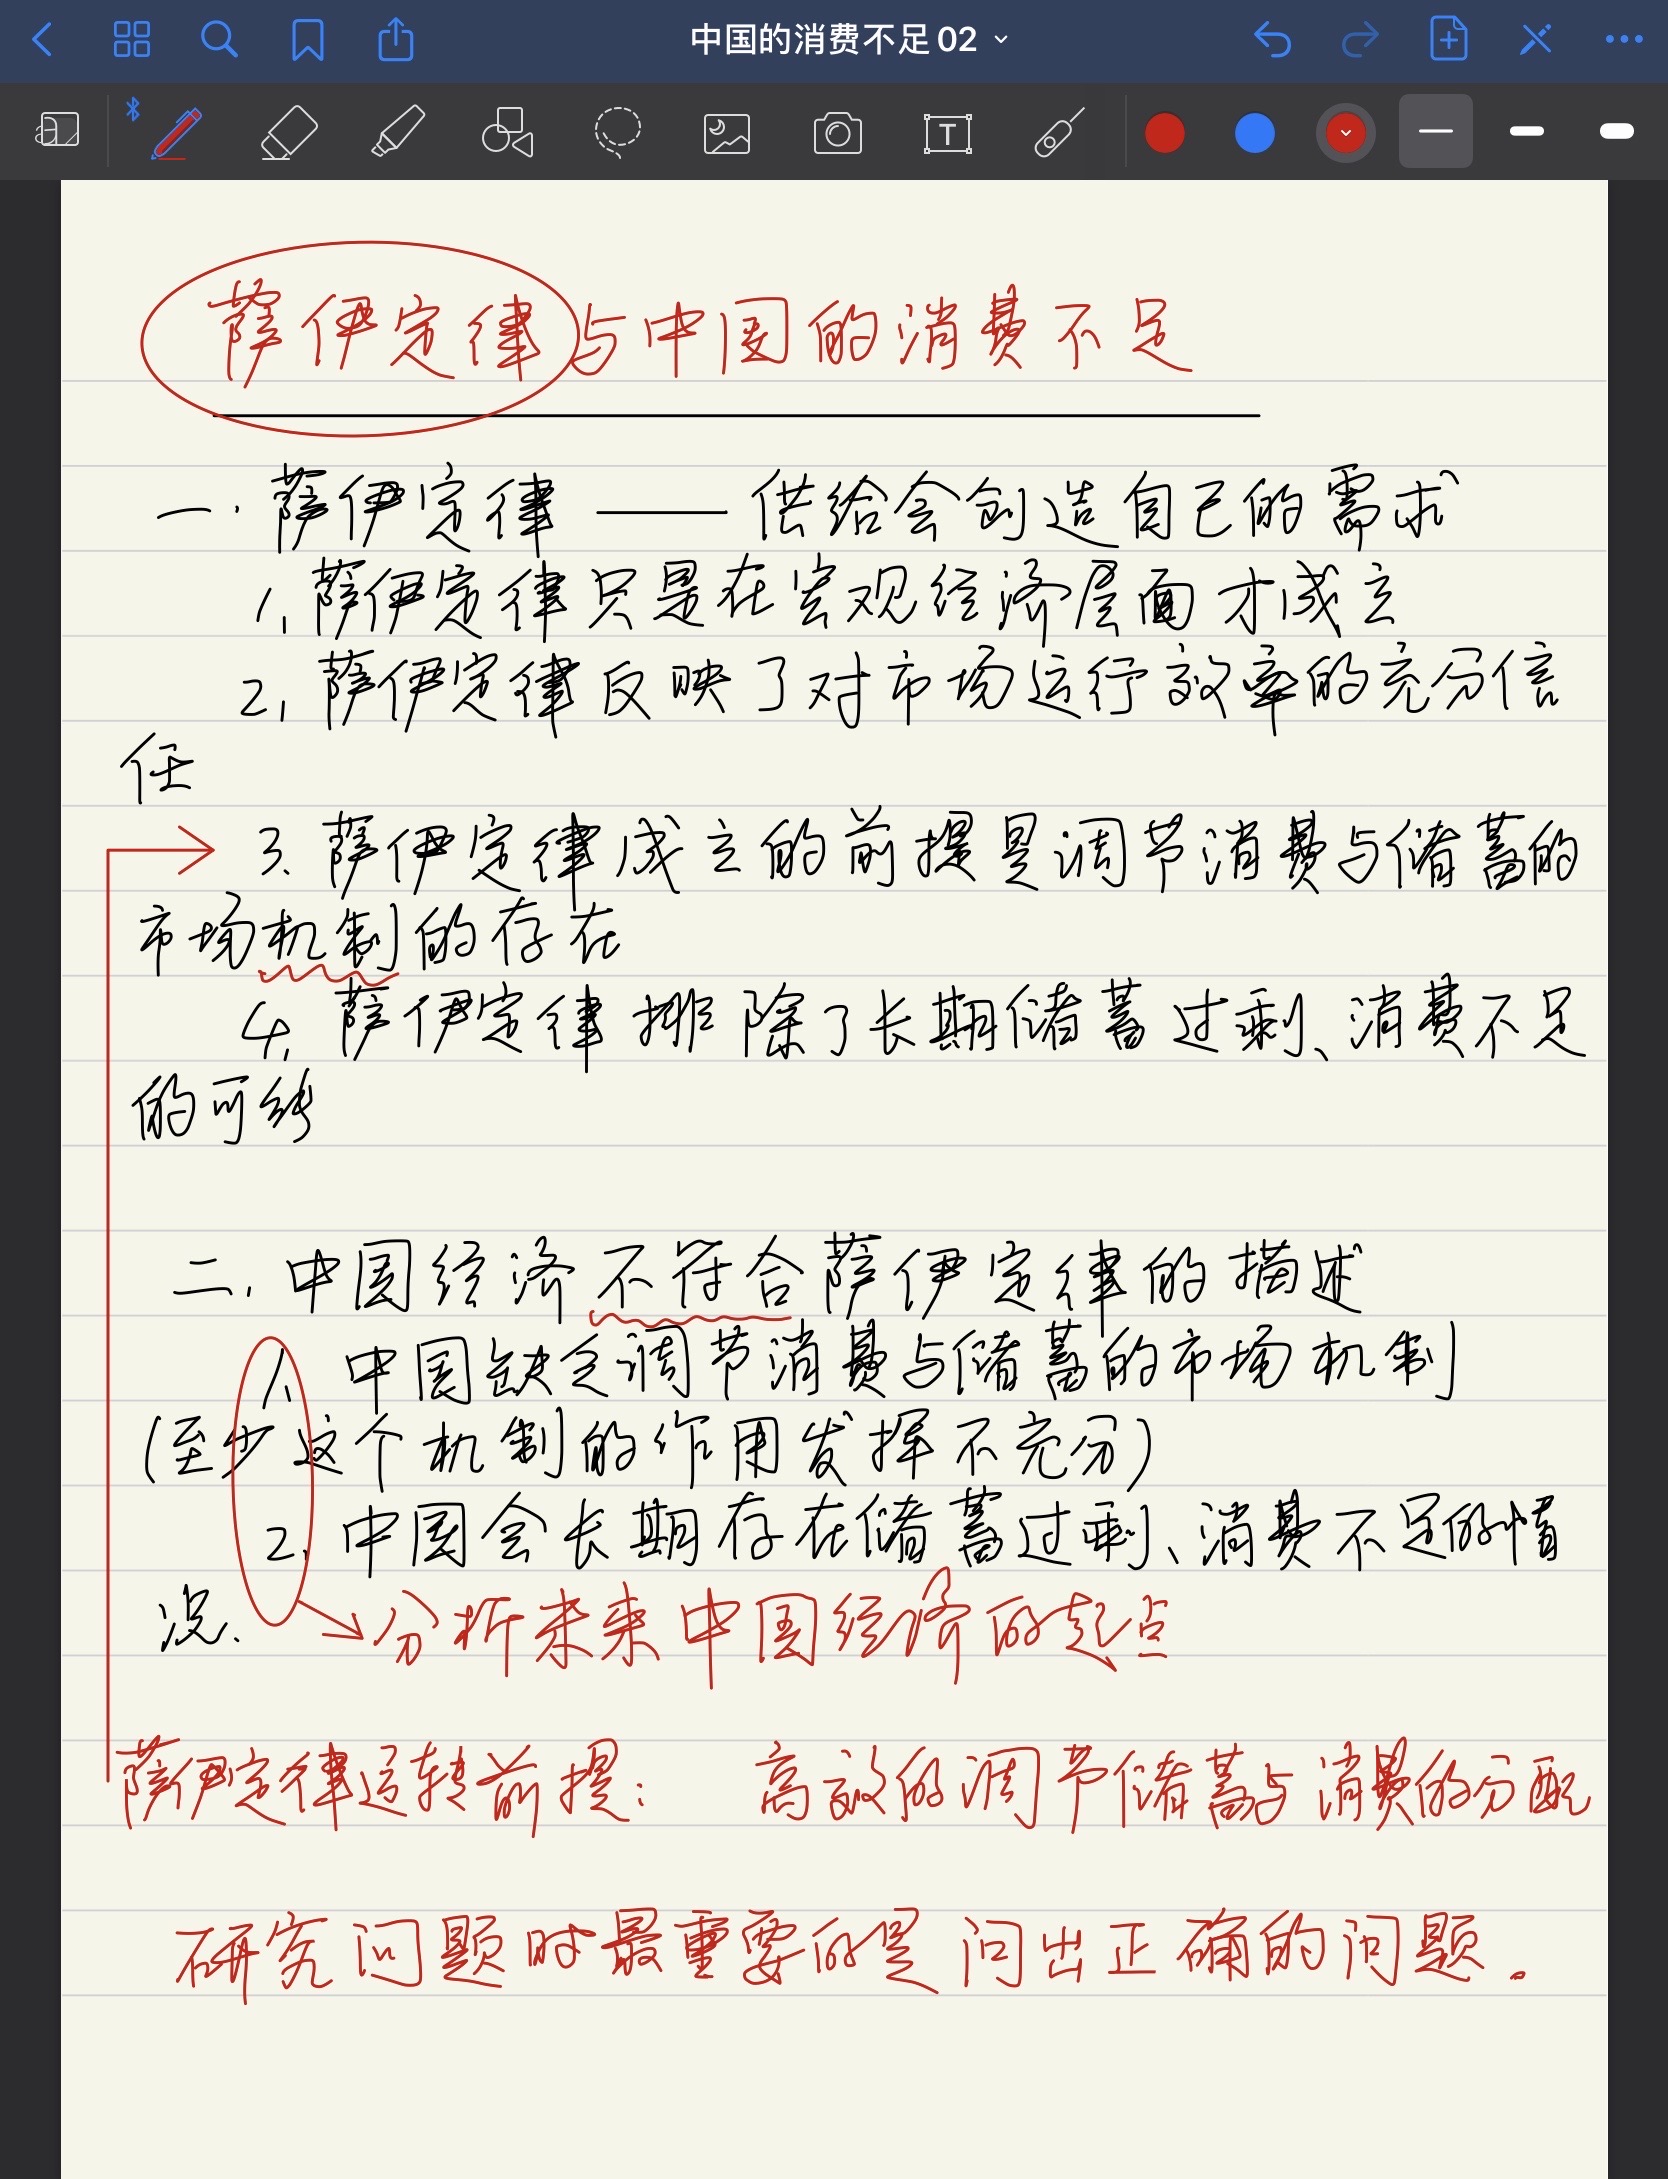 中国的消费不足 02
T
萨伊定律与中国的消费不足
一. 萨伊定律 —— 供给会创造自己的需求
1. 萨伊定律只是在宏观经济层面才成立
2. 萨伊定律反映了对市场运行效率的充分信
任
3. 萨伊定律成立的前提是调节消费与储蓄的
市场机制的存在
4. 萨伊定律排除了长期储蓄过剩、消费不足
的可能
二. 中国经济不符合萨伊定律的描述
1. 中国缺乏调节消费与储蓄的市场机制
(至少这个机制的作用发挥不充分)
2. 中国会长期存在储蓄过剩、消费不足的情
况.
分析未来中国经济的起点
萨伊定律运转前提: 高效的调节储蓄与消费的分配
研究问题时最重要的是问出正确的问题。